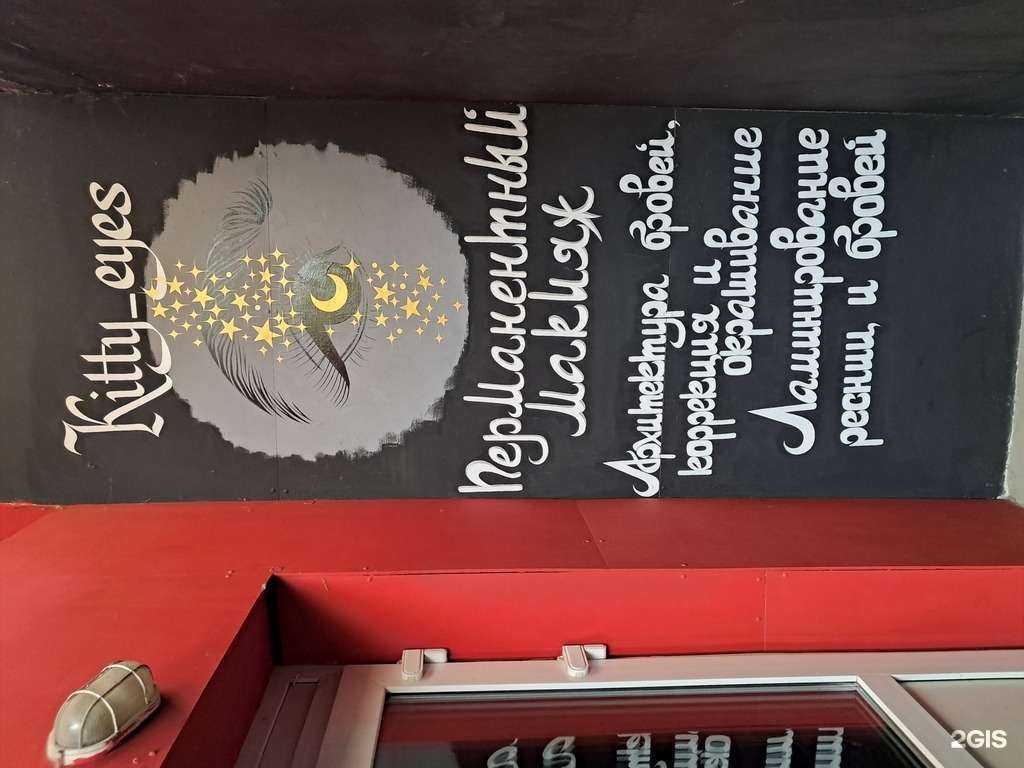 Kitty_eyes
Перманентный
макияж
Архитектура бровей,
коррекция и
окрашивание
Ламинирование
ресниц и бровей
2GIS